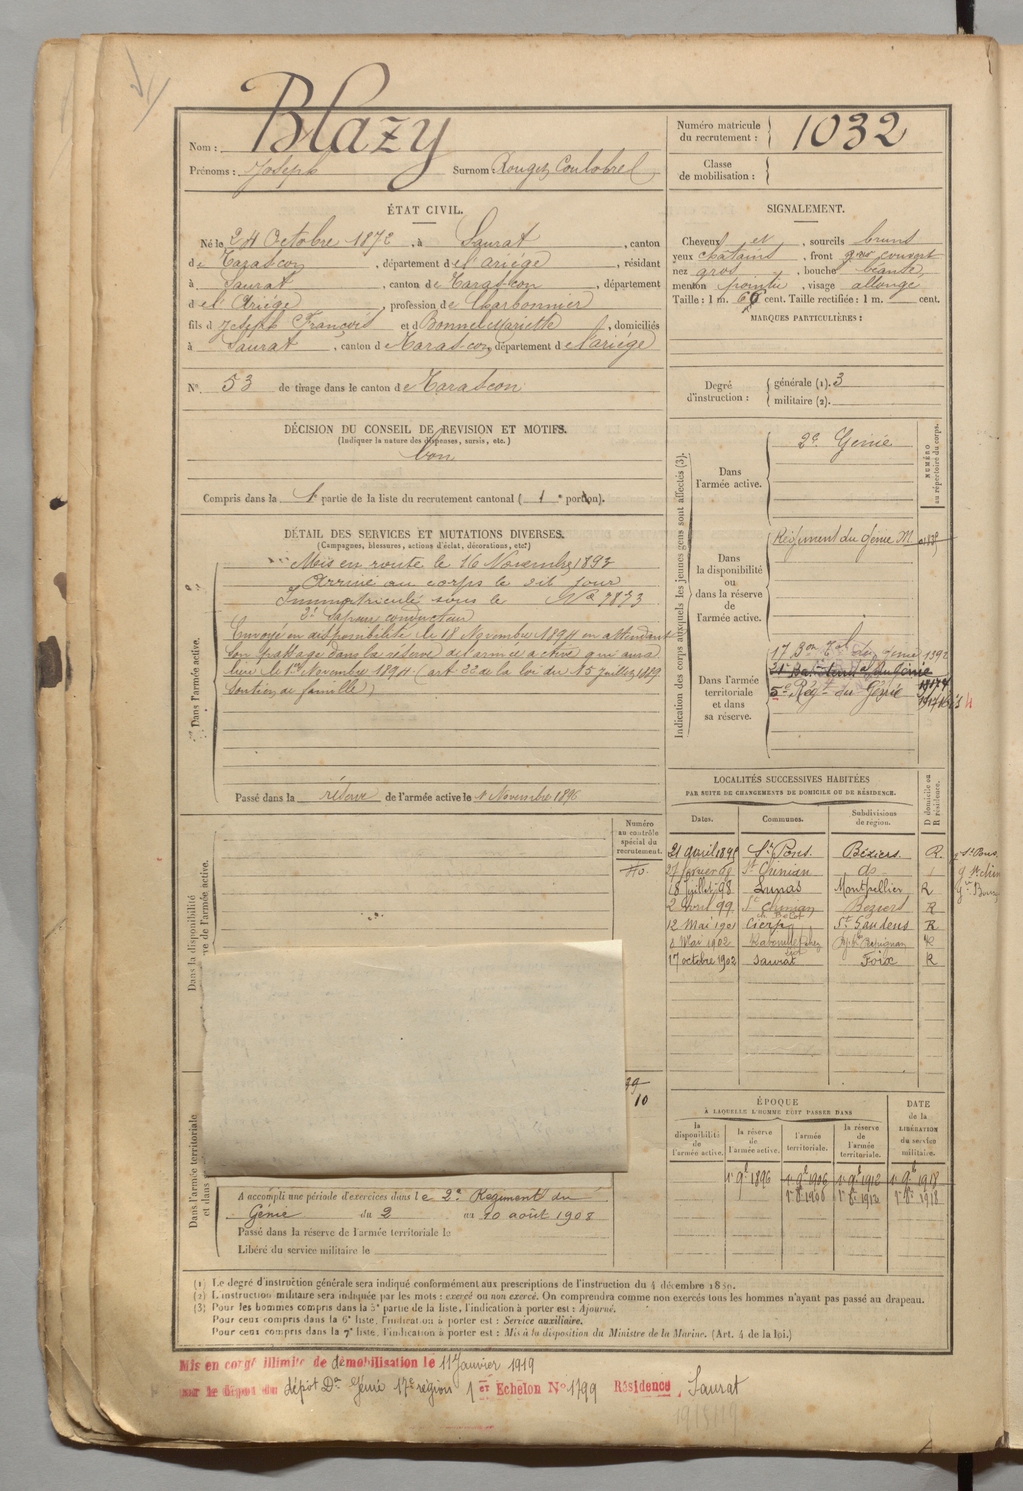 Nom : Blazy
Prénoms : Joseph Surnom : Rougez Coulobrel
Numéro matricule du recrutement : 1032
Classe de mobilisation :
ÉTAT CIVIL.
Né le 24 Octobre 1872, à Saurat, canton
de Tarascon, département de l'ariége, résidant
à Saurat, canton de Tarascon, département
de l'Ariége, profession de Charbonnier
fils d Joseph François et d Bonnel Mariette, domiciliés
à Saurat, canton d Tarascon, département de l'ariége
N° 53 de tirage dans le canton de Tarascon
DÉCISION DU CONSEIL DE REVISION ET MOTIFS.
(Indiquer la nature des dispenses, sursis, etc.)
bon
Compris dans la 1e partie de la liste du recrutement cantonal ( 1e portion).
SIGNALEMENT.
Cheveux et , sourcils bruns
yeux chatains, front couvert
nez gros, bouche béante,
menton pointu, visage allongé
Taille : 1 m. 66 cent. Taille rectifiée : 1 m. cent.
MARQUES PARTICULIÈRES :
Degré d'instruction : générale (1). 3
militaire (2).
DÉTAIL DES SERVICES ET MUTATIONS DIVERSES.
(Campagnes, blessures, actions d'éclat, décorations, etc.)
Dans l'armée active.
Mis en route le 16 Novembre 1893
Arrivé au corps le dit jour
Immatriculé sous le N° 7873
Sapeur conducteur
Envoyé en disponibilité le 18 Novembre 1894 en attendant
son passage dans la réserve de l'armée active qui aura
lieu le 1er Novembre 1896 (art 22 de la loi du 15 Juillet 1889
soutien de famille)
Passé dans la réserve de l'armée active le 1 Novembre 1896
Indication des corps auxquels les jeunes gens sont affectés (3).
NUMÉRO au répertoire du corps.
Dans l'armée active.
2e Génie
Dans la disponibilité ou dans la réserve de l'armée active.
Régiment du Génie M
Dans l'armée territoriale et dans sa réserve.
17 Bon Tal du génie
5e Régt du Génie
LOCALITÉS SUCCESSIVES HABITÉES
PAR SUITE DE CHANGEMENTS DE DOMICILE OU DE RÉSIDENCE.
Dates. Communes. Subdivisions de région. D domicile ou R résidence.
21 avril 1895 St Pons Béziers R.
27 98 St Chinian do
18 juillet 98 Lunas Montpellier R
2 99 St Chinian Beziers R
12 Mai 1901 Cierp St Gaudens R
1 Mai 1902 Perpignan R
17 octobre 1902 Saurat Foix R
St Pons
Numéro au contrôle spécial du recrutement.
Dans la disponibilité
ve de l'armée active.
Dans l'armée territoriale
et dans
10
A accompli une période d'exercices dans le 2e Régiment du
Génie du 2 au 10 août 1908
Passé dans la réserve de l'armée territoriale le
Libéré du service militaire le
ÉPOQUE
À LAQUELLE L'HOMME DOIT PASSER DANS
DATE de la LIBÉRATION du service militaire.
la disponibilité de l'armée active. la réserve de l'armée active. l'armée territoriale. la réserve de l'armée territoriale.
1896 1906 1912 1918
1906 1912 1918
(1) Le degré d'instruction générale sera indiqué conformément aux prescriptions de l'instruction du 4 décembre 1889.
(2) L'instruction militaire sera indiquée par les mots : exercé ou non exercé. On comprendra comme non exercés tous les hommes n'ayant pas passé au drapeau.
(3) Pour les hommes compris dans la 5e partie de la liste, l'indication à porter est : Ajourné.
Pour ceux compris dans la 6e liste, l'indication à porter est : Service auxiliaire.
Pour ceux compris dans la 7e liste, l'indication à porter est : Mis à la disposition du Ministre de la Marine. (Art. 4 de la loi.)
Mis en congé illimité de démobilisation le 11 Janvier 1919
par le dépôt du dépôt Génie 17e région 1er Echelon N° 1799 Résidence, Saurat